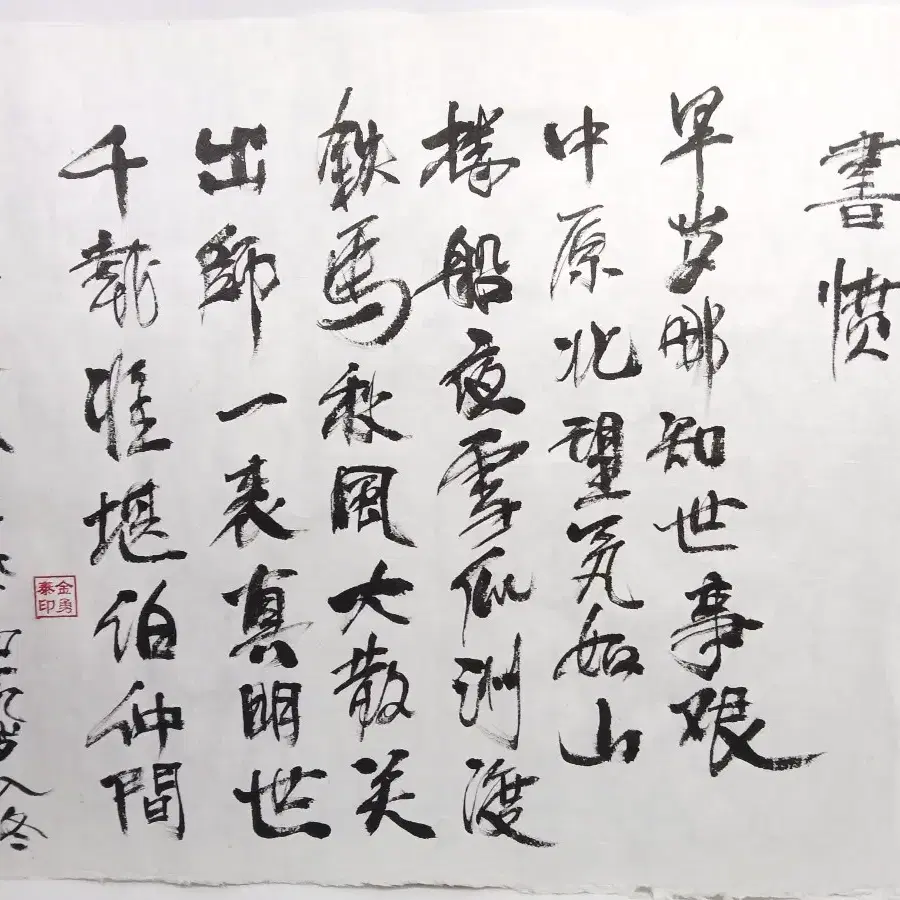 書愤
早岁那知世事艰
中原北望氣如山
楼船夜雪瓜洲渡
鉄馬秋風大散关
出師一表真明世
千載谁堪伯仲間
入冬
金勇泰印